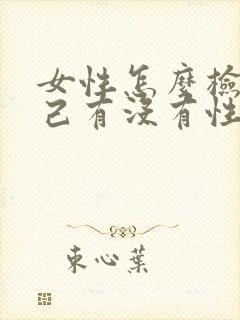 女性怎麼檢
己有沒有性
束心葉